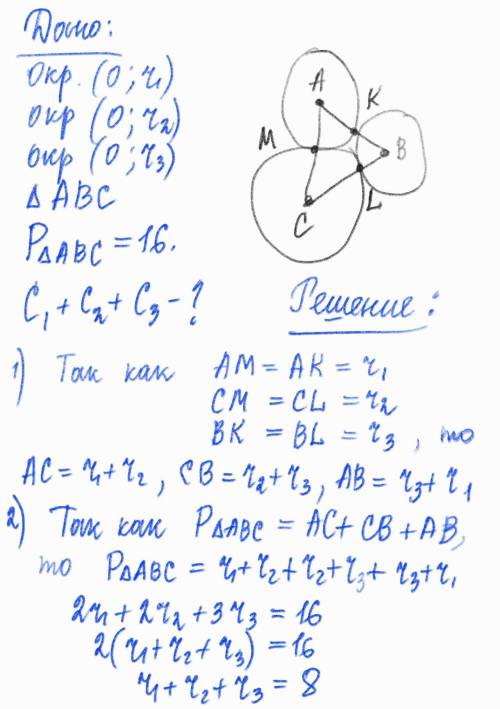 Дано:
Окр. (O; r₁)
окр (O; r₂)
окр (O; r₃)
Δ ABC
P_ΔABC = 16.
C₁ + C₂ + C₃ - ?
A
K
M
B
C
L
Решение:
1) Так как AM = AK = r₁
CM = CL = r₂
BK = BL = r₃, то
AC = r₁ + r₂, CB = r₂ + r₃, AB = r₃ + r₁
2) Так как P_ΔABC = AC + CB + AB,
то P_ΔABC = r₁ + r₂ + r₂ + r₃ + r₃ + r₁
2r₁ + 2r₂ + 3r₃ = 16
2(r₁ + r₂ + r₃) = 16
r₁ + r₂ + r₃ = 8